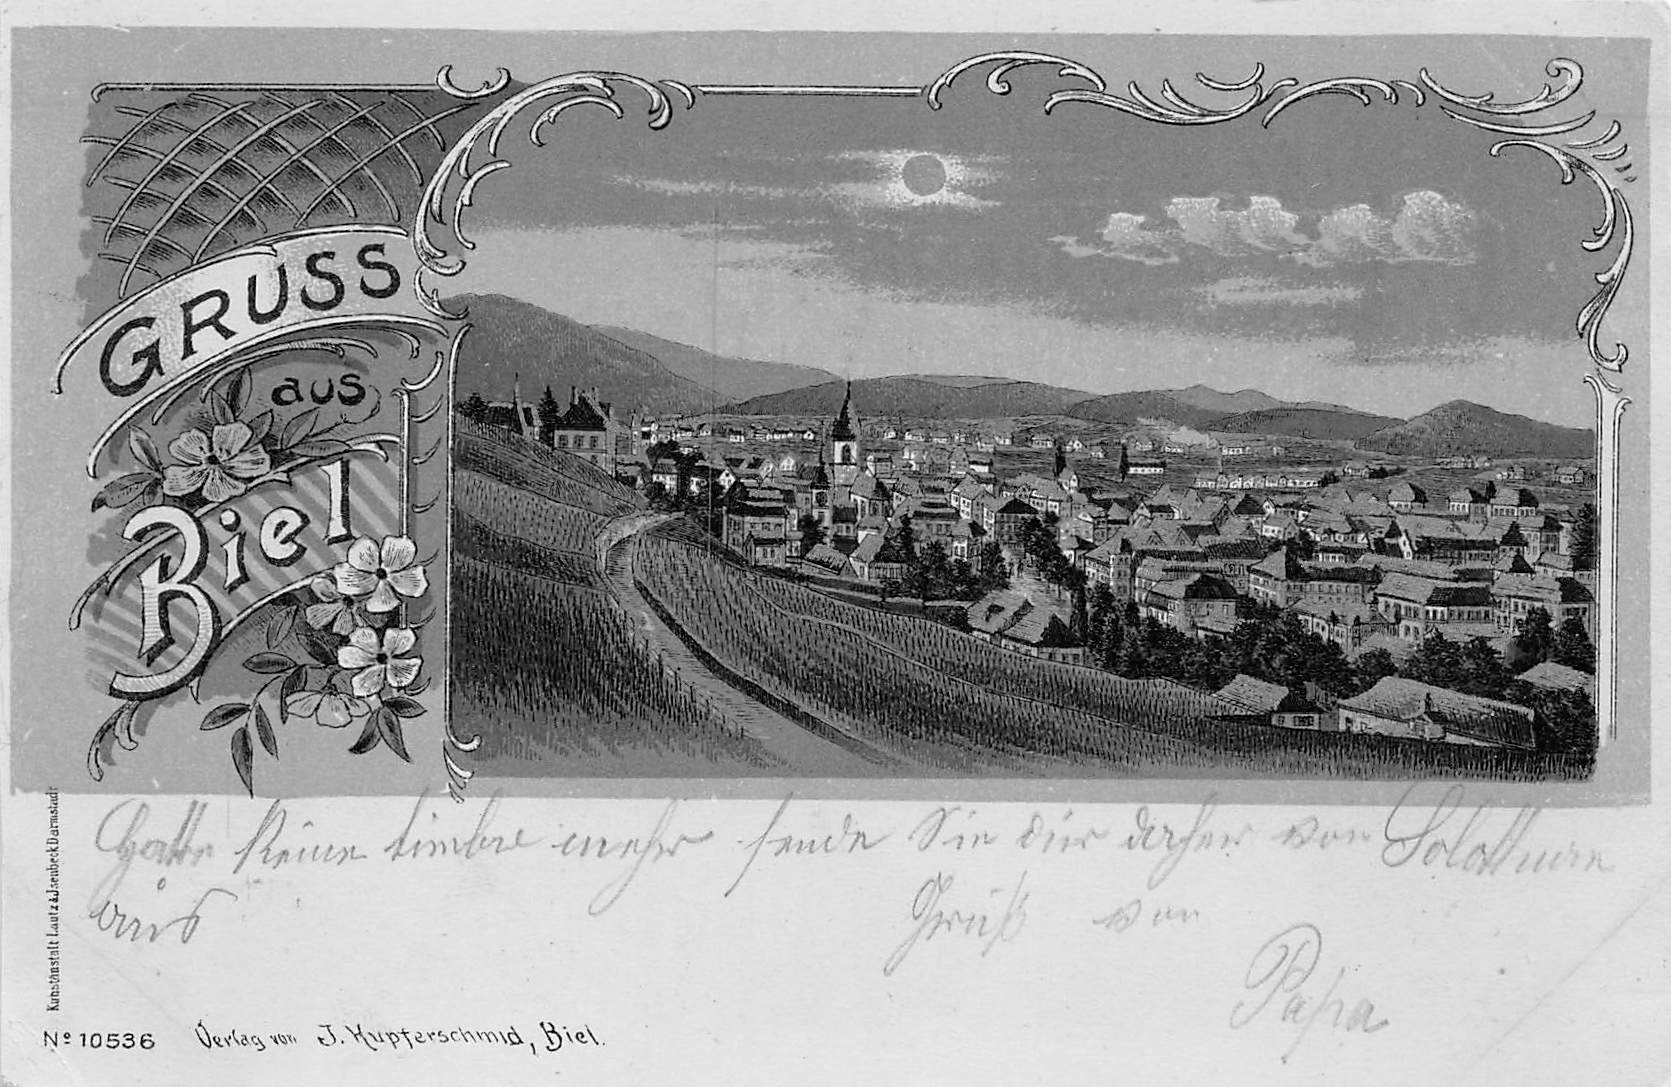 GRUSS
aus
Biel
Hatte keine timbre mehr sende Sie dir daher von Solothurn
aus
Gruß von
Papa
Kunstanstalt Lautz & Isenbeck Darmstadt
Nº 10536 Verlag von J. Kupferschmid, Biel.